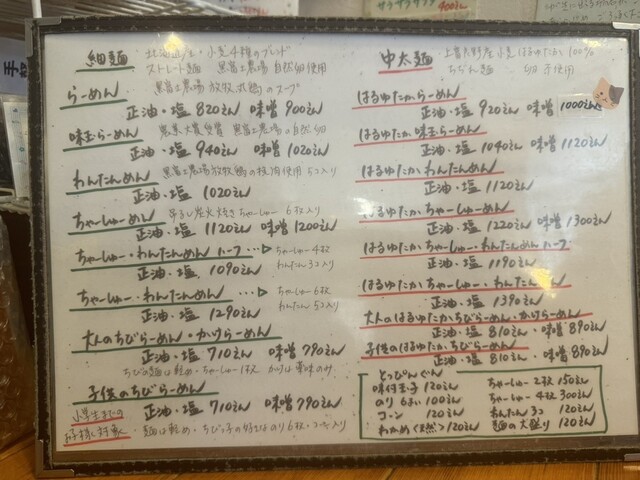 サラサラサラ
900えん
細麺 北海道産・小麦4種のブレンド
ストレート麺 黒富士農場 自然卵使用
らーめん 黒富士農場 放牧 鶏のスープ
正油・塩 820えん 味噌 900えん
味玉らーめん 農業大賞受賞 黒富士農場の自然卵
正油・塩 940えん 味噌 1020えん
わんたんめん 黒富士農場放牧鶏の 使用 5コ入り
正油・塩 1020えん
ちゃーしゅーめん 吊るし炭火焼きちゃーしゅー 6枚入り
正油・塩 1120えん 味噌 1200えん
ちゃーしゅー・わんたんめん ハーフ・・・▷ ちゃーしゅー4枚
正油・塩 1090えん わんたん3コ入り
ちゃーしゅー・わんたんめん ・・・▷ ちゃーしゅー6枚
正油・塩 1290えん わんたん5コ入り
大人のちびらーめん・かけらーめん
正油・塩 710えん 味噌 790えん
ちびの麺は軽め・ちゃーしゅー1枚 かけは薬味のみ
子供のちびらーめん
小学生までの 正油・塩 710えん 味噌 790えん
お子様に対象 麺は軽め・ちびっ子の好きなのり6枚・コーン入り
中太麺 上富良野産 小麦 はるゆたか 100%
ちぢれ麺 卵 使用
はるゆたからーめん
正油・塩 920えん 味噌 1000えん
はるゆたか味玉らーめん
正油・塩 1040えん 味噌 1120えん
はるゆたかわんたんめん
正油・塩 1120えん
はるゆたかちゃーしゅーめん
正油・塩 1220えん 味噌 1300えん
はるゆたかちゃーしゅー・わんたんめん ハーフ
正油・塩 1190えん
はるゆたか ちゃーしゅー・わんたんめん
正油・塩 1390えん
大人のはるゆたかちびらーめん・かけらーめん
正油・塩 810えん・味噌 890えん
子供のはるゆたかちびらーめん
正油・塩 810えん・味噌 890えん
とっぴんぐん
味付玉子 120えん ちゃーしゅー2枚 150えん
のり6まい 100えん ちゃーしゅー4枚 300えん
コーン 120えん わんたん3コ 120えん
わかめ〈天然〉120えん 麺の大盛り 120えん